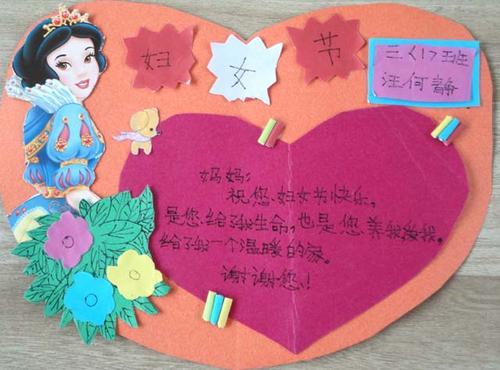 妇女节
三（1）班
汪何静
妈妈：
祝您妇女节快乐。
是您给了我生命，也是您养我爱我。
给了我一个温暖的家。
谢谢您！